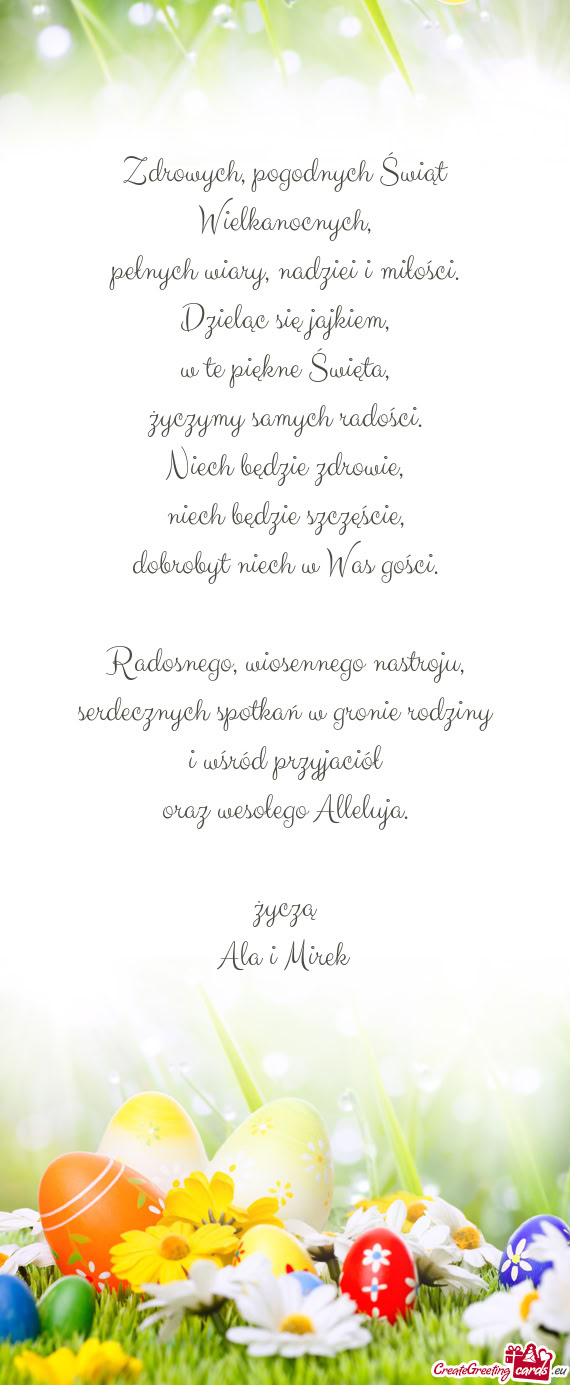 Zdrowych, pogodnych Świąt
Wielkanocnych,
pełnych wiary, nadziei i miłości.
Dzieląc się jajkiem,
w te piękne Święta,
życzymy samych radości.
Niech będzie zdrowie,
niech będzie szczęście,
dobrobyt niech w Was gości.
Radosnego, wiosennego nastroju,
serdecznych spotkań w gronie rodziny
i wśród przyjaciół
oraz wesołego Alleluja.
życzą
Ala i Mirek
CreateGreeting cards .eu